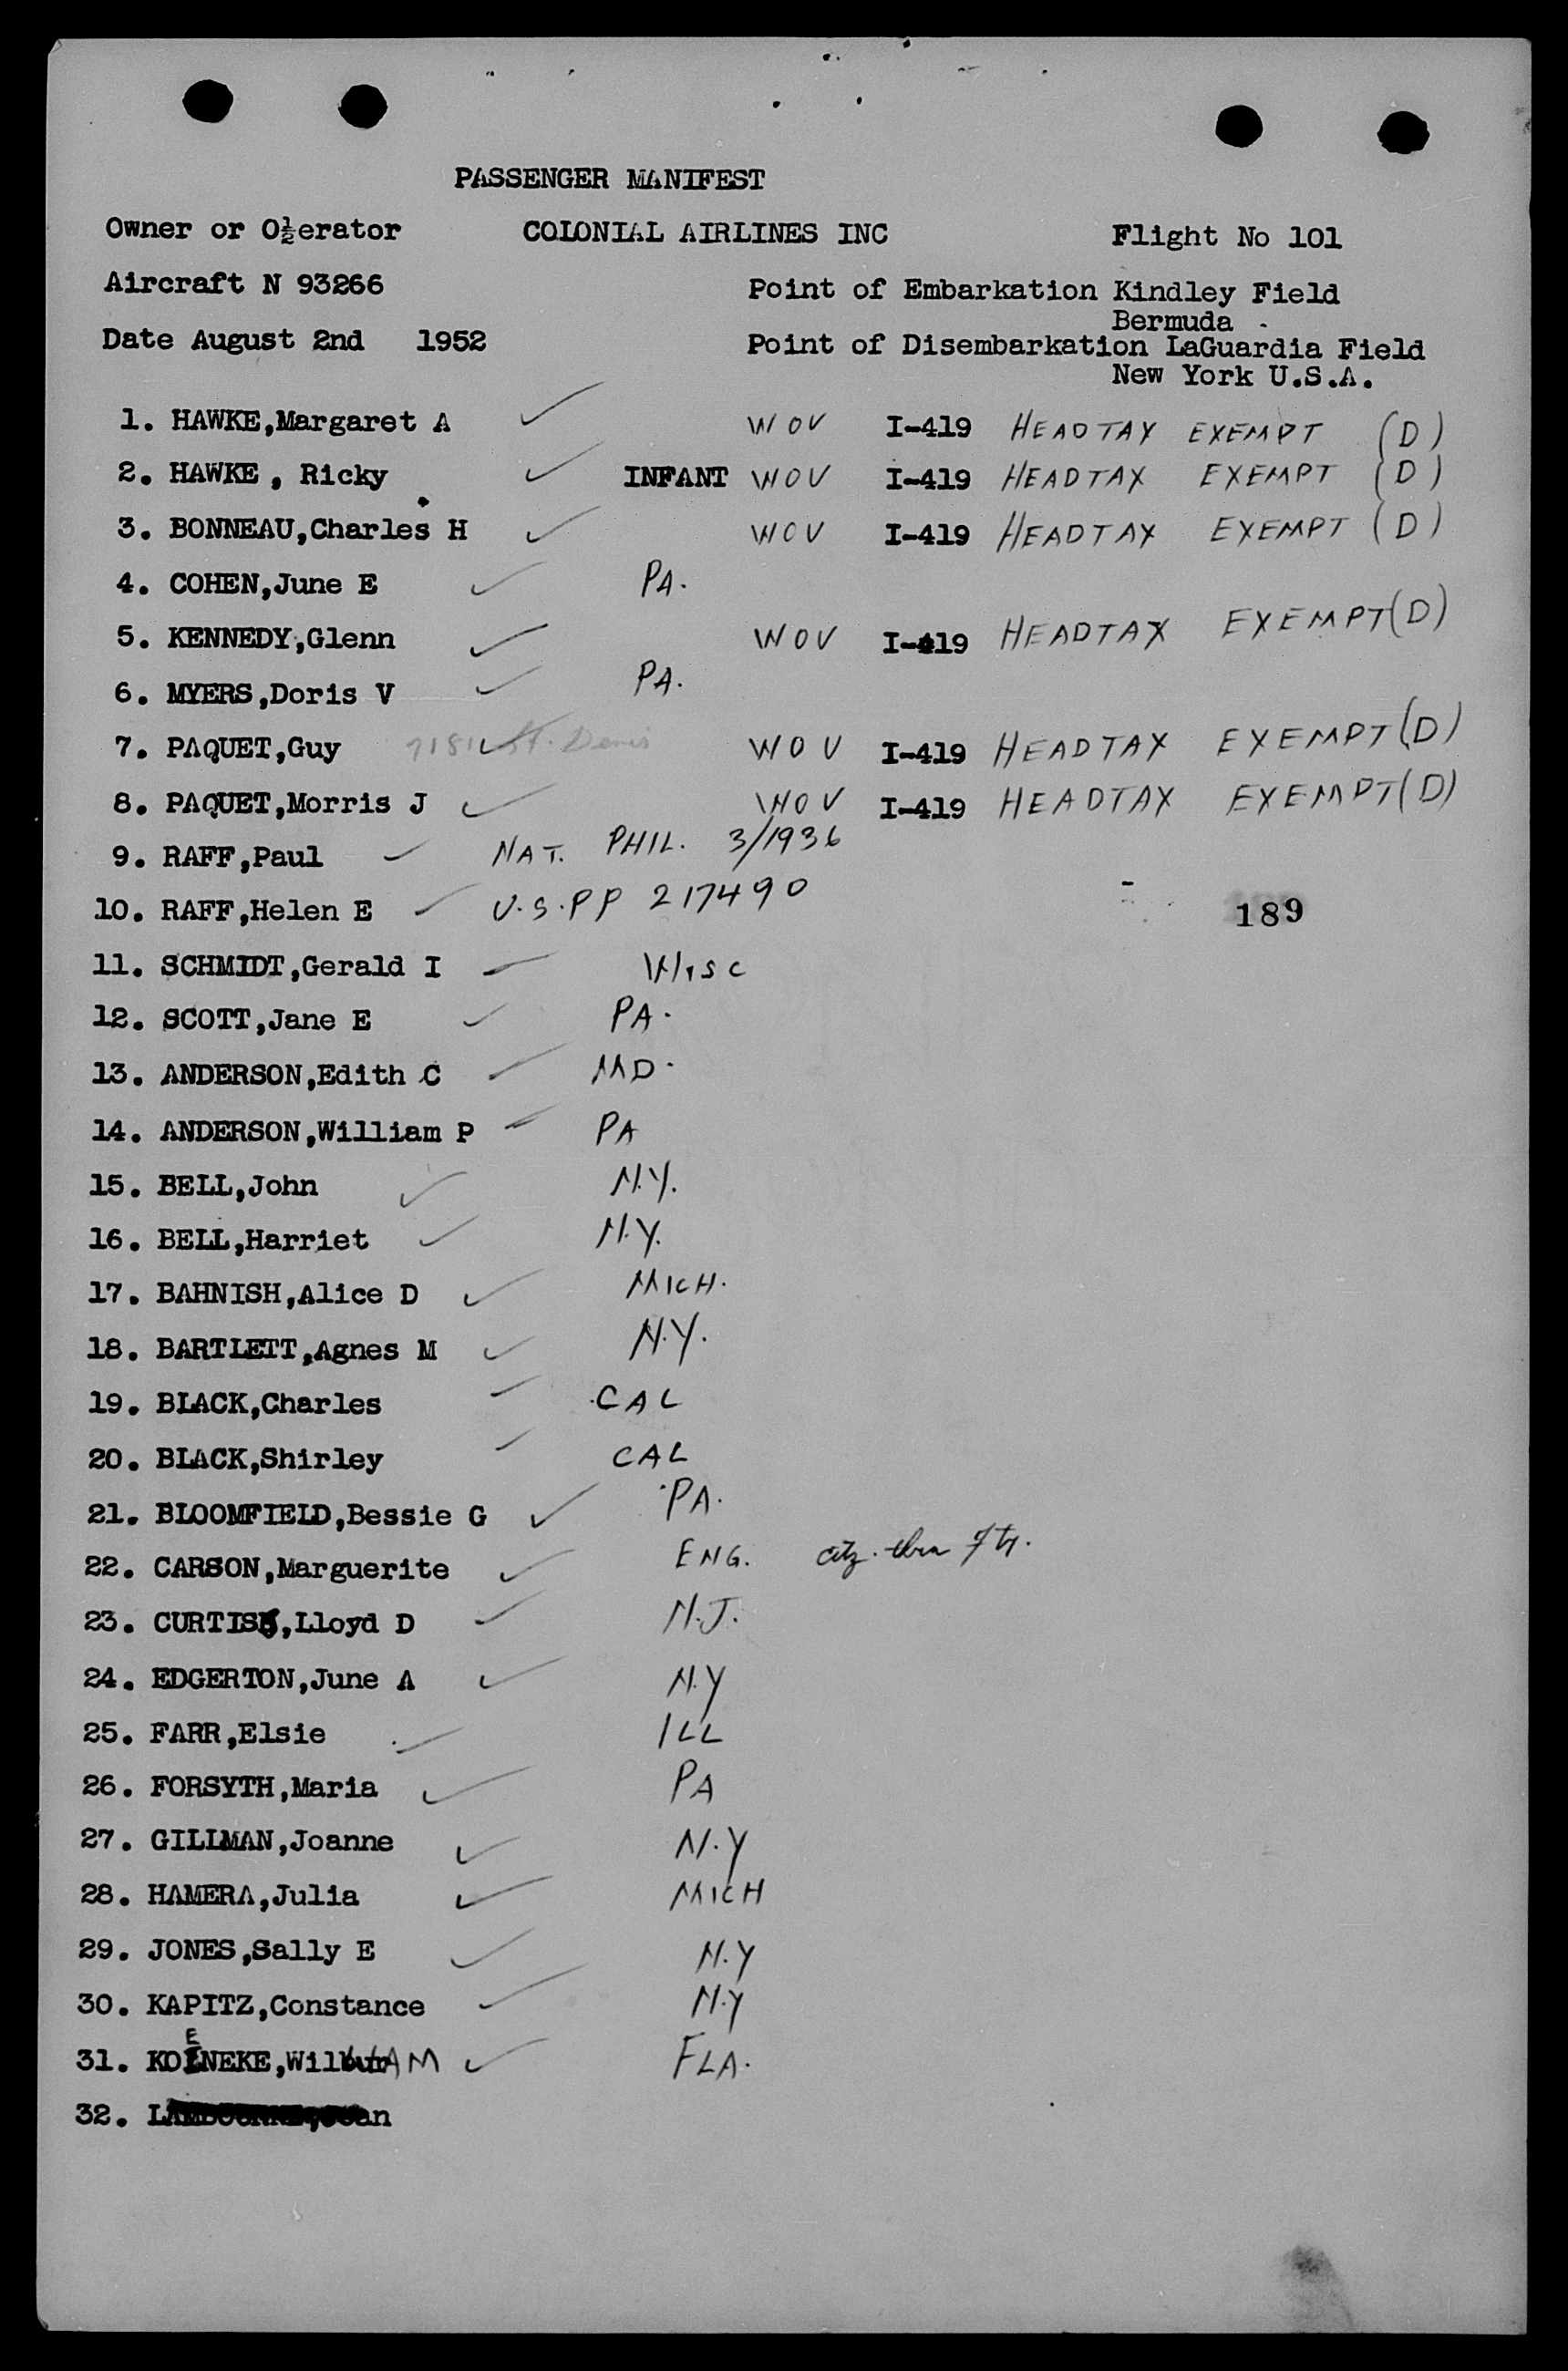 PASSENGER MANIFEST
Owner or O½erator COLONIAL AIRLINES INC Flight No 101
Aircraft N 93266 Point of Embarkation Kindley Field
Bermuda
Date August 2nd 1952 Point of Disembarkation LaGuardia Field
New York U.S.A.
1. HAWKE,Margaret A WOV I-419 HEADTAX EXEMPT (D)
2. HAWKE, Ricky INFANT WOV I-419 HEADTAX EXEMPT (D)
3. BONNEAU,Charles H WOV I-419 HEADTAX EXEMPT (D)
4. COHEN,June E PA.
5. KENNEDY,Glenn WOV I-419 HEADTAX EXEMPT (D)
6. MYERS,Doris V PA.
7. PAQUET,Guy St. Denis WOV I-419 HEADTAX EXEMPT (D)
8. PAQUET,Morris J WOV I-419 HEADTAX EXEMPT (D)
9. RAFF,Paul NAT. PHIL. 3/1936
10. RAFF,Helen E U.S.PP 217490 189
11. SCHMIDT,Gerald I Wisc
12. SCOTT,Jane E PA.
13. ANDERSON,Edith C MD.
14. ANDERSON,William P PA
15. BELL,John N.Y.
16. BELL,Harriet N.Y.
17. BAHNISH,Alice D MICH.
18. BARTLETT,Agnes M N.Y.
19. BLACK,Charles CAL
20. BLACK,Shirley CAL
21. BLOOMFIELD,Bessie G PA.
22. CARSON,Marguerite ENG. citz. thru
23. CURTIS,Lloyd D N.J.
24. EDGERTON,June A N.Y
25. FARR,Elsie ILL
26. FORSYTH,Maria PA
27. GILLMAN,Joanne N.Y
28. HAMERA,Julia MICH
29. JONES,Sally E N.Y
30. KAPITZ,Constance N.Y
31. KOENEKE,WilliAM FLA.
32.